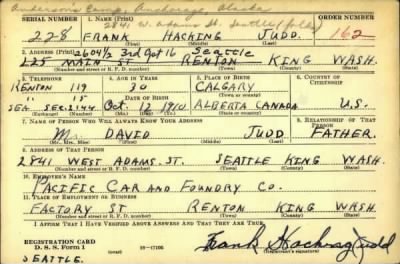 Anderson's Camp, Anchorage, Alaska
2841 W. Adams St. Seattle
SERIAL NUMBER 1. NAME (Print) ORDER NUMBER
228 FRANK HACKING JUDD. 162
(First) (Middle) (Last)
2. ADDRESS (Print) 2604½ 3rd Apt 16 Seattle
225 MAIN ST RENTON KING WASH.
(Number and street or R. F. D. number) (Town) (County) (State)
3. TELEPHONE 4. AGE IN YEARS 5. PLACE OF BIRTH 6. COUNTRY OF CITIZENSHIP
RENTON 119 30 CALGARY
DATE OF BIRTH
SEA. SEC. 2144 OCT. 12 1910 ALBERTA CANADA U.S.
(Exchange) (Number) (Mo.) (Day) (Yr.) (State or country)
7. NAME OF PERSON WHO WILL ALWAYS KNOW YOUR ADDRESS
Mr. DAVID JUDD FATHER.
(Mr., Mrs., Miss) (First) (Middle) (Last) (Relationship)
8. ADDRESS OF THAT PERSON
2841 WEST ADAMS. ST. SEATTLE KING WASH.
(Number and street or R. F. D. number) (Town) (County) (State)
10. EMPLOYER'S NAME
PACIFIC CAR AND FOUNDRY CO.
11. PLACE OF EMPLOYMENT OR BUSINESS
FACTORY ST RENTON KING WASH
(Number and street or R. F. D. number) (Town) (County) (State)
I AFFIRM THAT I HAVE VERIFIED ABOVE ANSWERS AND THAT THEY ARE TRUE.
REGISTRATION CARD
D. S. S. Form 1 16-17105 Frank Hacking Judd
(Registrant's signature)
SEATTLE.